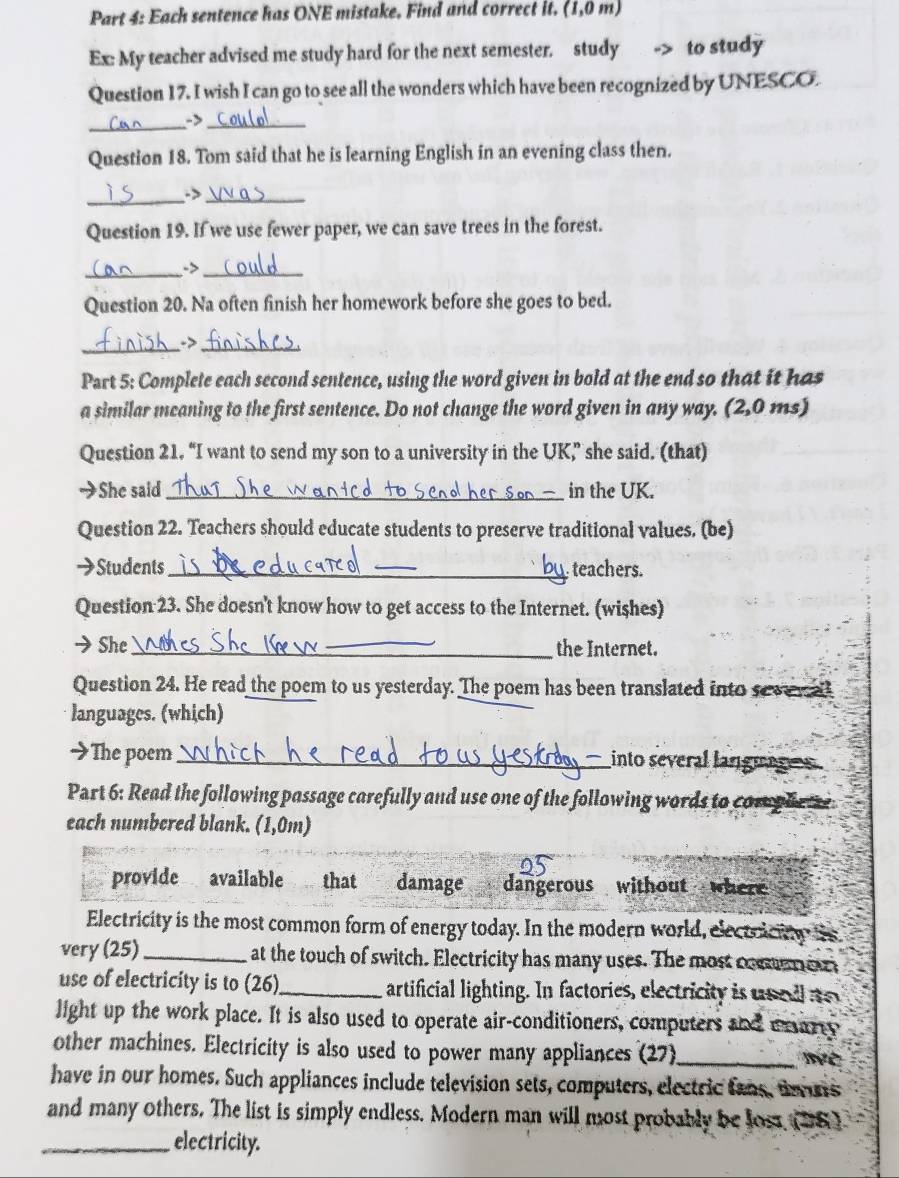 Part 4: Each sentence has ONE mistake. Find and correct it. (1,0 m)
Ex: My teacher advised me study hard for the next semester. study -> to study
Question 17. I wish I can go to see all the wonders which have been recognized by UNESCO.
can -> could
Question 18. Tom said that he is learning English in an evening class then.
is -> was
Question 19. If we use fewer paper, we can save trees in the forest.
can -> could
Question 20. Na often finish her homework before she goes to bed.
finish -> finishes
Part 5: Complete each second sentence, using the word given in bold at the end so that it has
a similar meaning to the first sentence. Do not change the word given in any way. (2,0 ms)
Question 21. "I want to send my son to a university in the UK," she said. (that)
→She said That She wanted to send her son — in the UK.
Question 22. Teachers should educate students to preserve traditional values. (be)
→Students is be educated — by teachers.
Question 23. She doesn't know how to get access to the Internet. (wishes)
→ She wishes She Knew — the Internet.
Question 24. He read the poem to us yesterday. The poem has been translated into several
languages. (which)
→The poem which he read to us yesterday — into several languages.
Part 6: Read the following passage carefully and use one of the following words to complete
each numbered blank. (1,0m)
25
provide available that damage dangerous without where
Electricity is the most common form of energy today. In the modern world, electricity is
very (25)__________ at the touch of switch. Electricity has many uses. The most common
use of electricity is to (26)__________ artificial lighting. In factories, electricity is used to
light up the work place. It is also used to operate air-conditioners, computers and many
other machines. Electricity is also used to power many appliances (27)__________ we
have in our homes. Such appliances include television sets, computers, electric fans,
and many others. The list is simply endless. Modern man will most probably be lost (28)
__________ electricity.